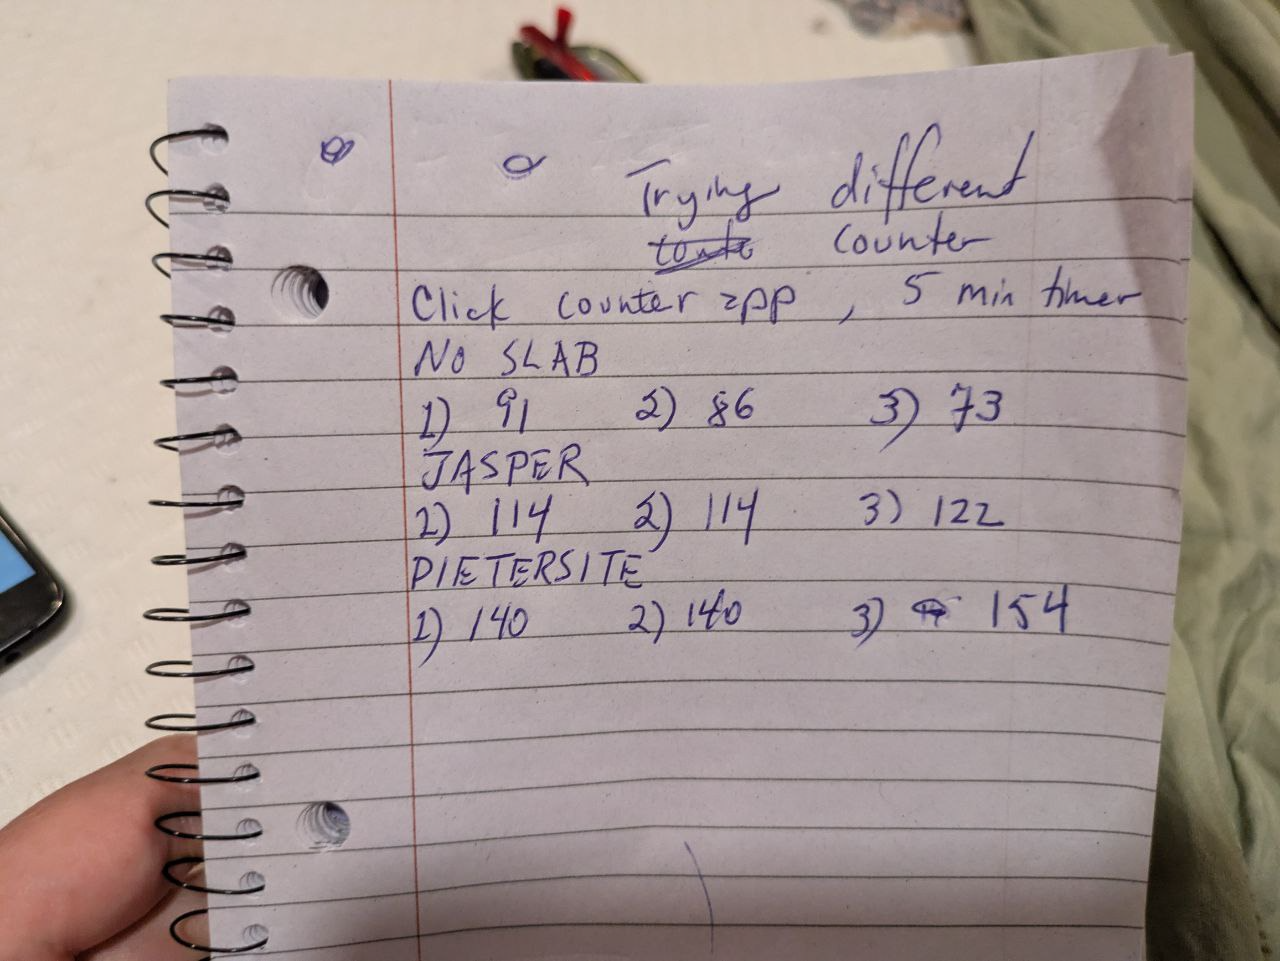 Trying different
counter
Click counter app, 5 min timer
NO SLAB
1) 91 2) 86 3) 73
JASPER
1) 114 2) 114 3) 122
PIETERSITE
1) 140 2) 140 3) 154